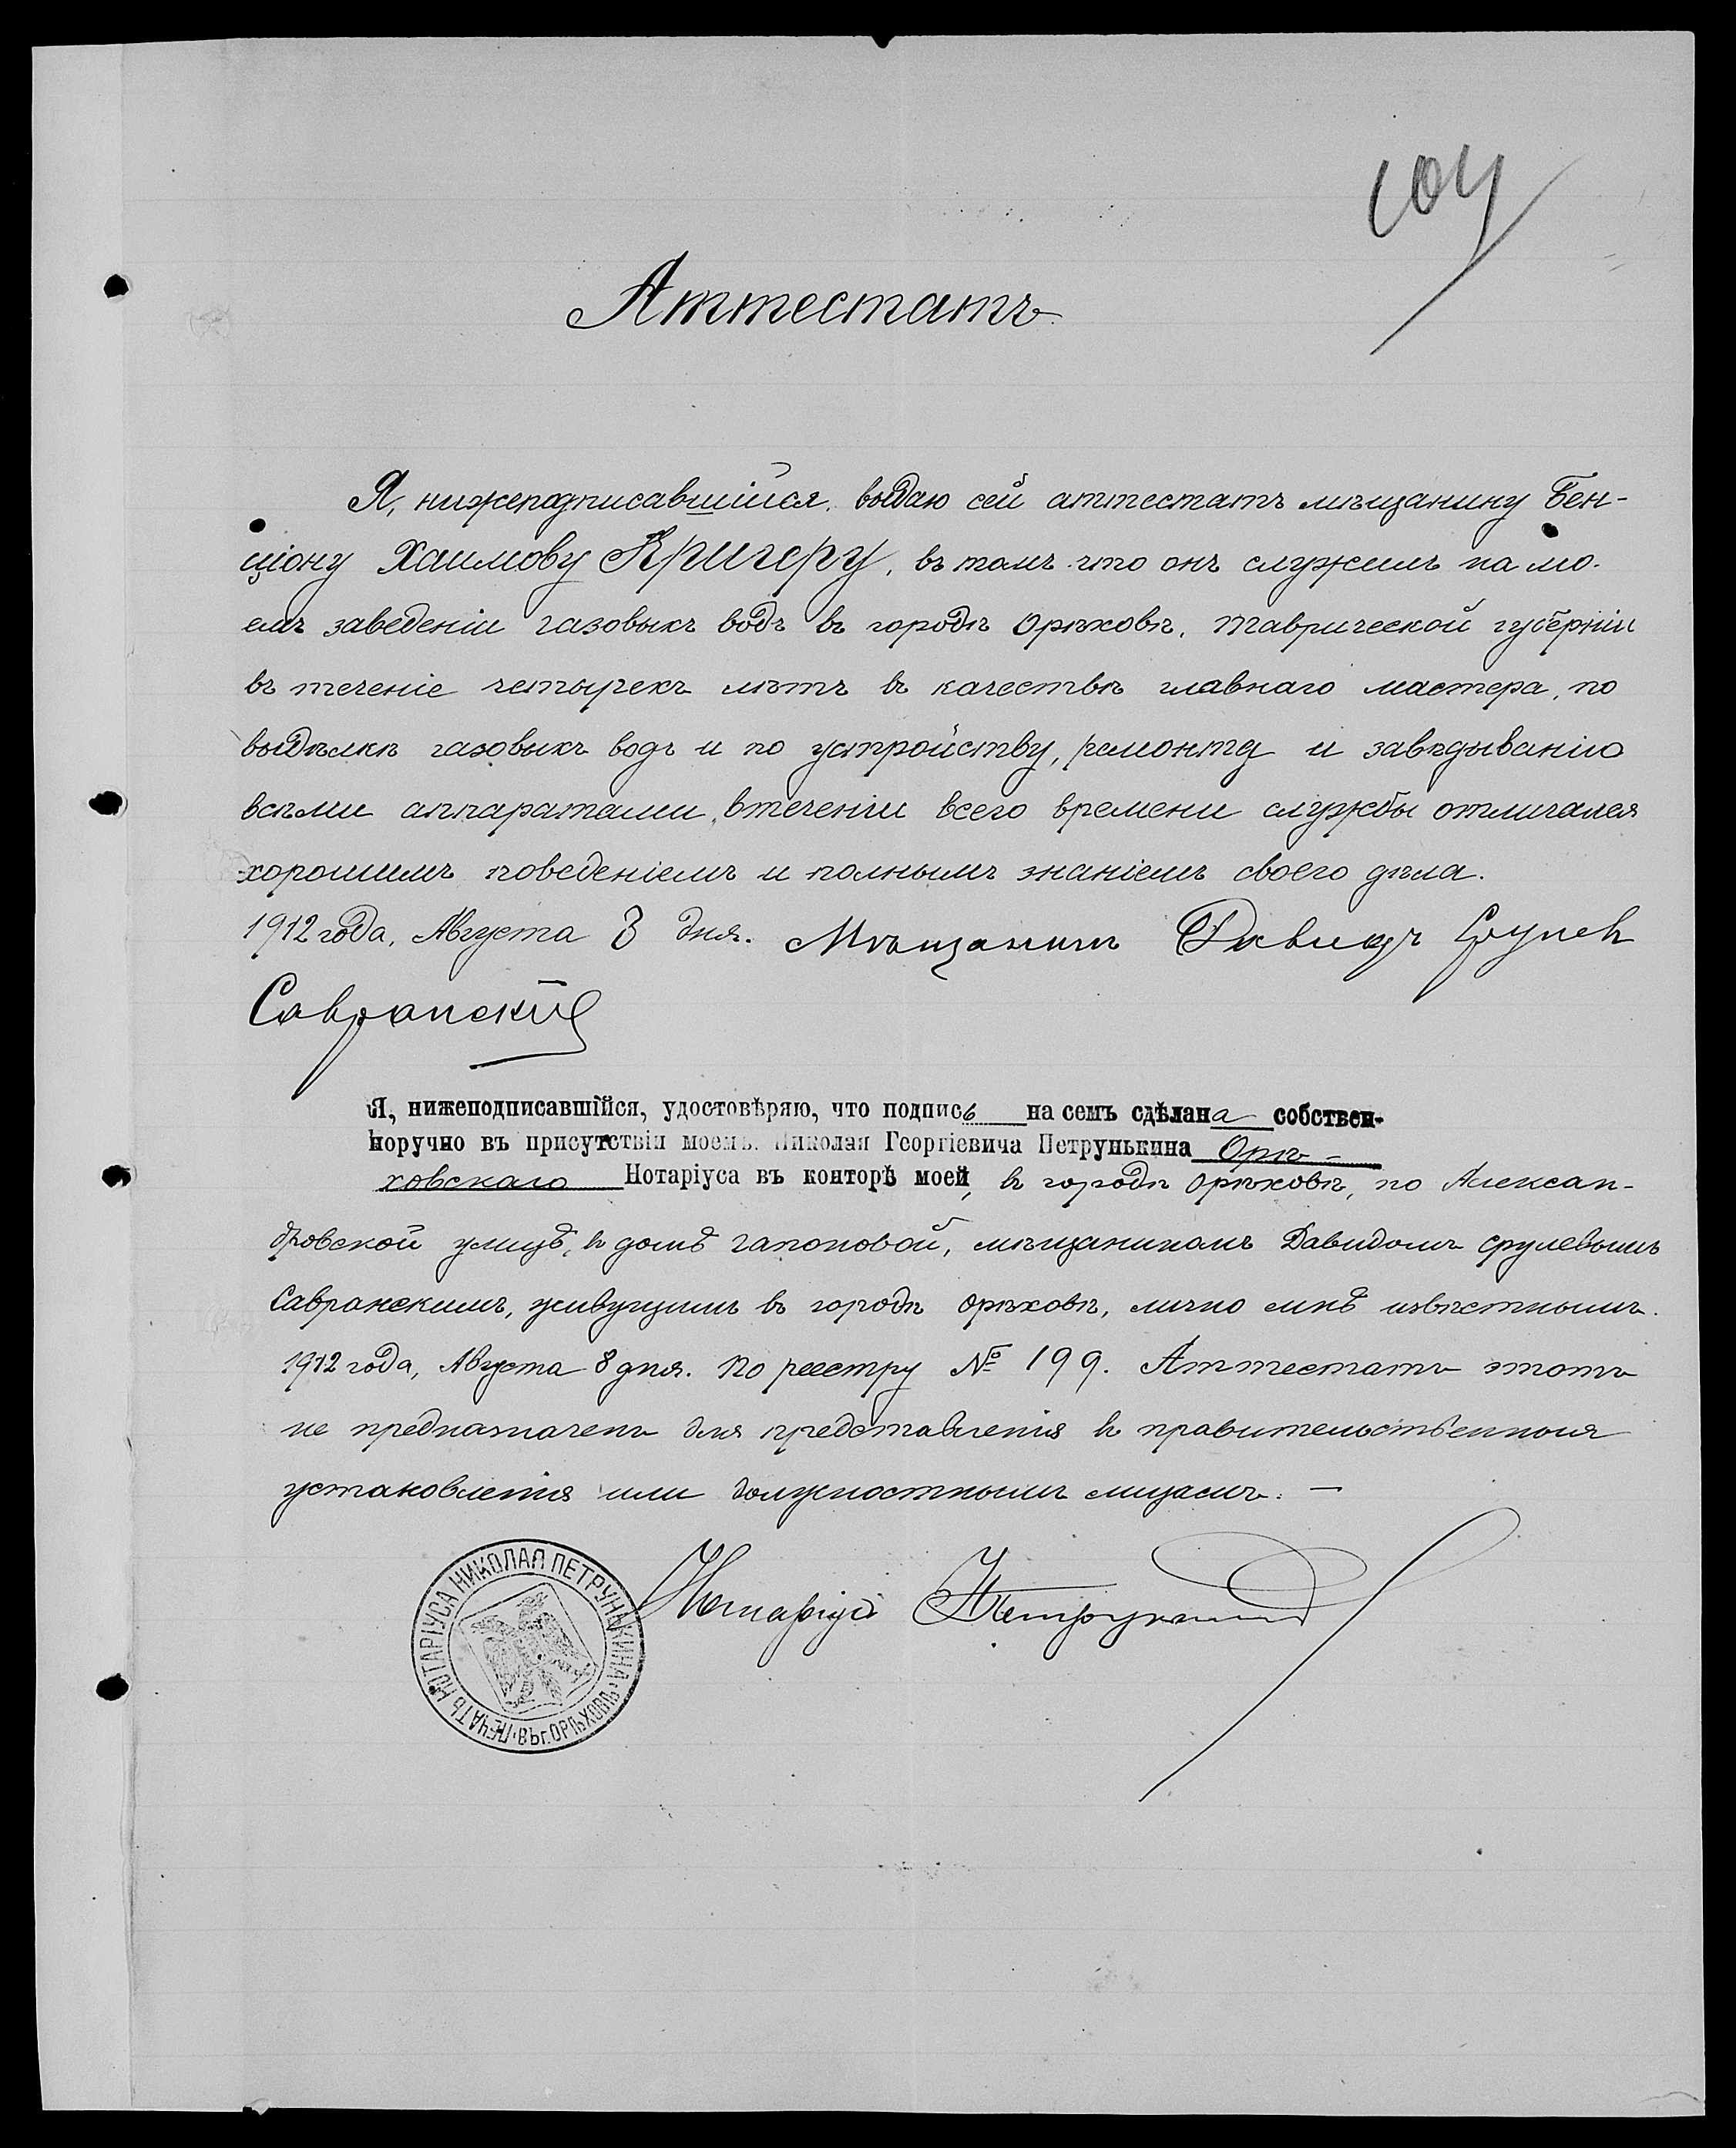 104
Аттестатъ
Я, нижеподписавшійся, выдаю сей аттестатъ мѣщанину Бен-
ціону Хаимову Кригеру, въ томъ что онъ служилъ на мо-
емъ заведеніи газовыхъ водъ въ городѣ Орѣховѣ, Таврической губерніи
въ теченіе четырехъ лѣтъ въ качествѣ главнаго мастера, по
выдѣлкѣ газовыхъ водъ и по устройству, ремонту и завѣдыванію
всѣми аппаратами, втеченіи всего времени службы отличался
хорошимъ поведеніемъ и полнымъ знаніемъ своего дѣла.
1912 года, Августа 8 дня. Мѣщанинъ Давидъ Срулев
Савранскій
Я, нижеподписавшійся, удостовѣряю, что подпись на семъ сдѣлана собствен-
норучно въ присутствіи моемъ, Николая Георгіевича Петрунькина Орѣ-
ховскаго Нотаріуса въ конторѣ моей, въ городѣ Орѣховѣ, по Алексан-
дровской улицѣ, въ домѣ Гапоновой, мѣщаниномъ Давидомъ Срулевымъ
Савранскимъ, живущимъ въ городѣ Орѣховѣ, лично мнѣ извѣстнымъ.
1912 года, Августа 8 дня. По реестру № 199. Аттестатъ этотъ
не предназначенъ для представленія въ правительственныя
установленія или должностнымъ лицамъ. —
Нотаріусъ Петрунькинъ
ПЕЧАТЬ НОТАРІУСА НИКОЛАЯ ПЕТРУНЬКИНА ВЪ Г. ОРѢХОВѢ